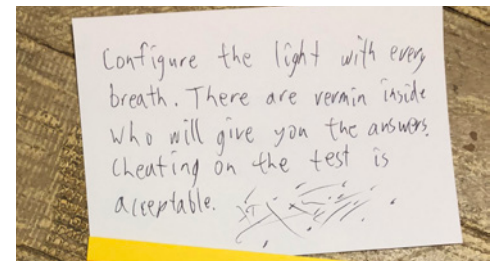 Configure the light with every
breath. There are vermin inside
who will give you the answers.
Cheating on the test is
acceptable.